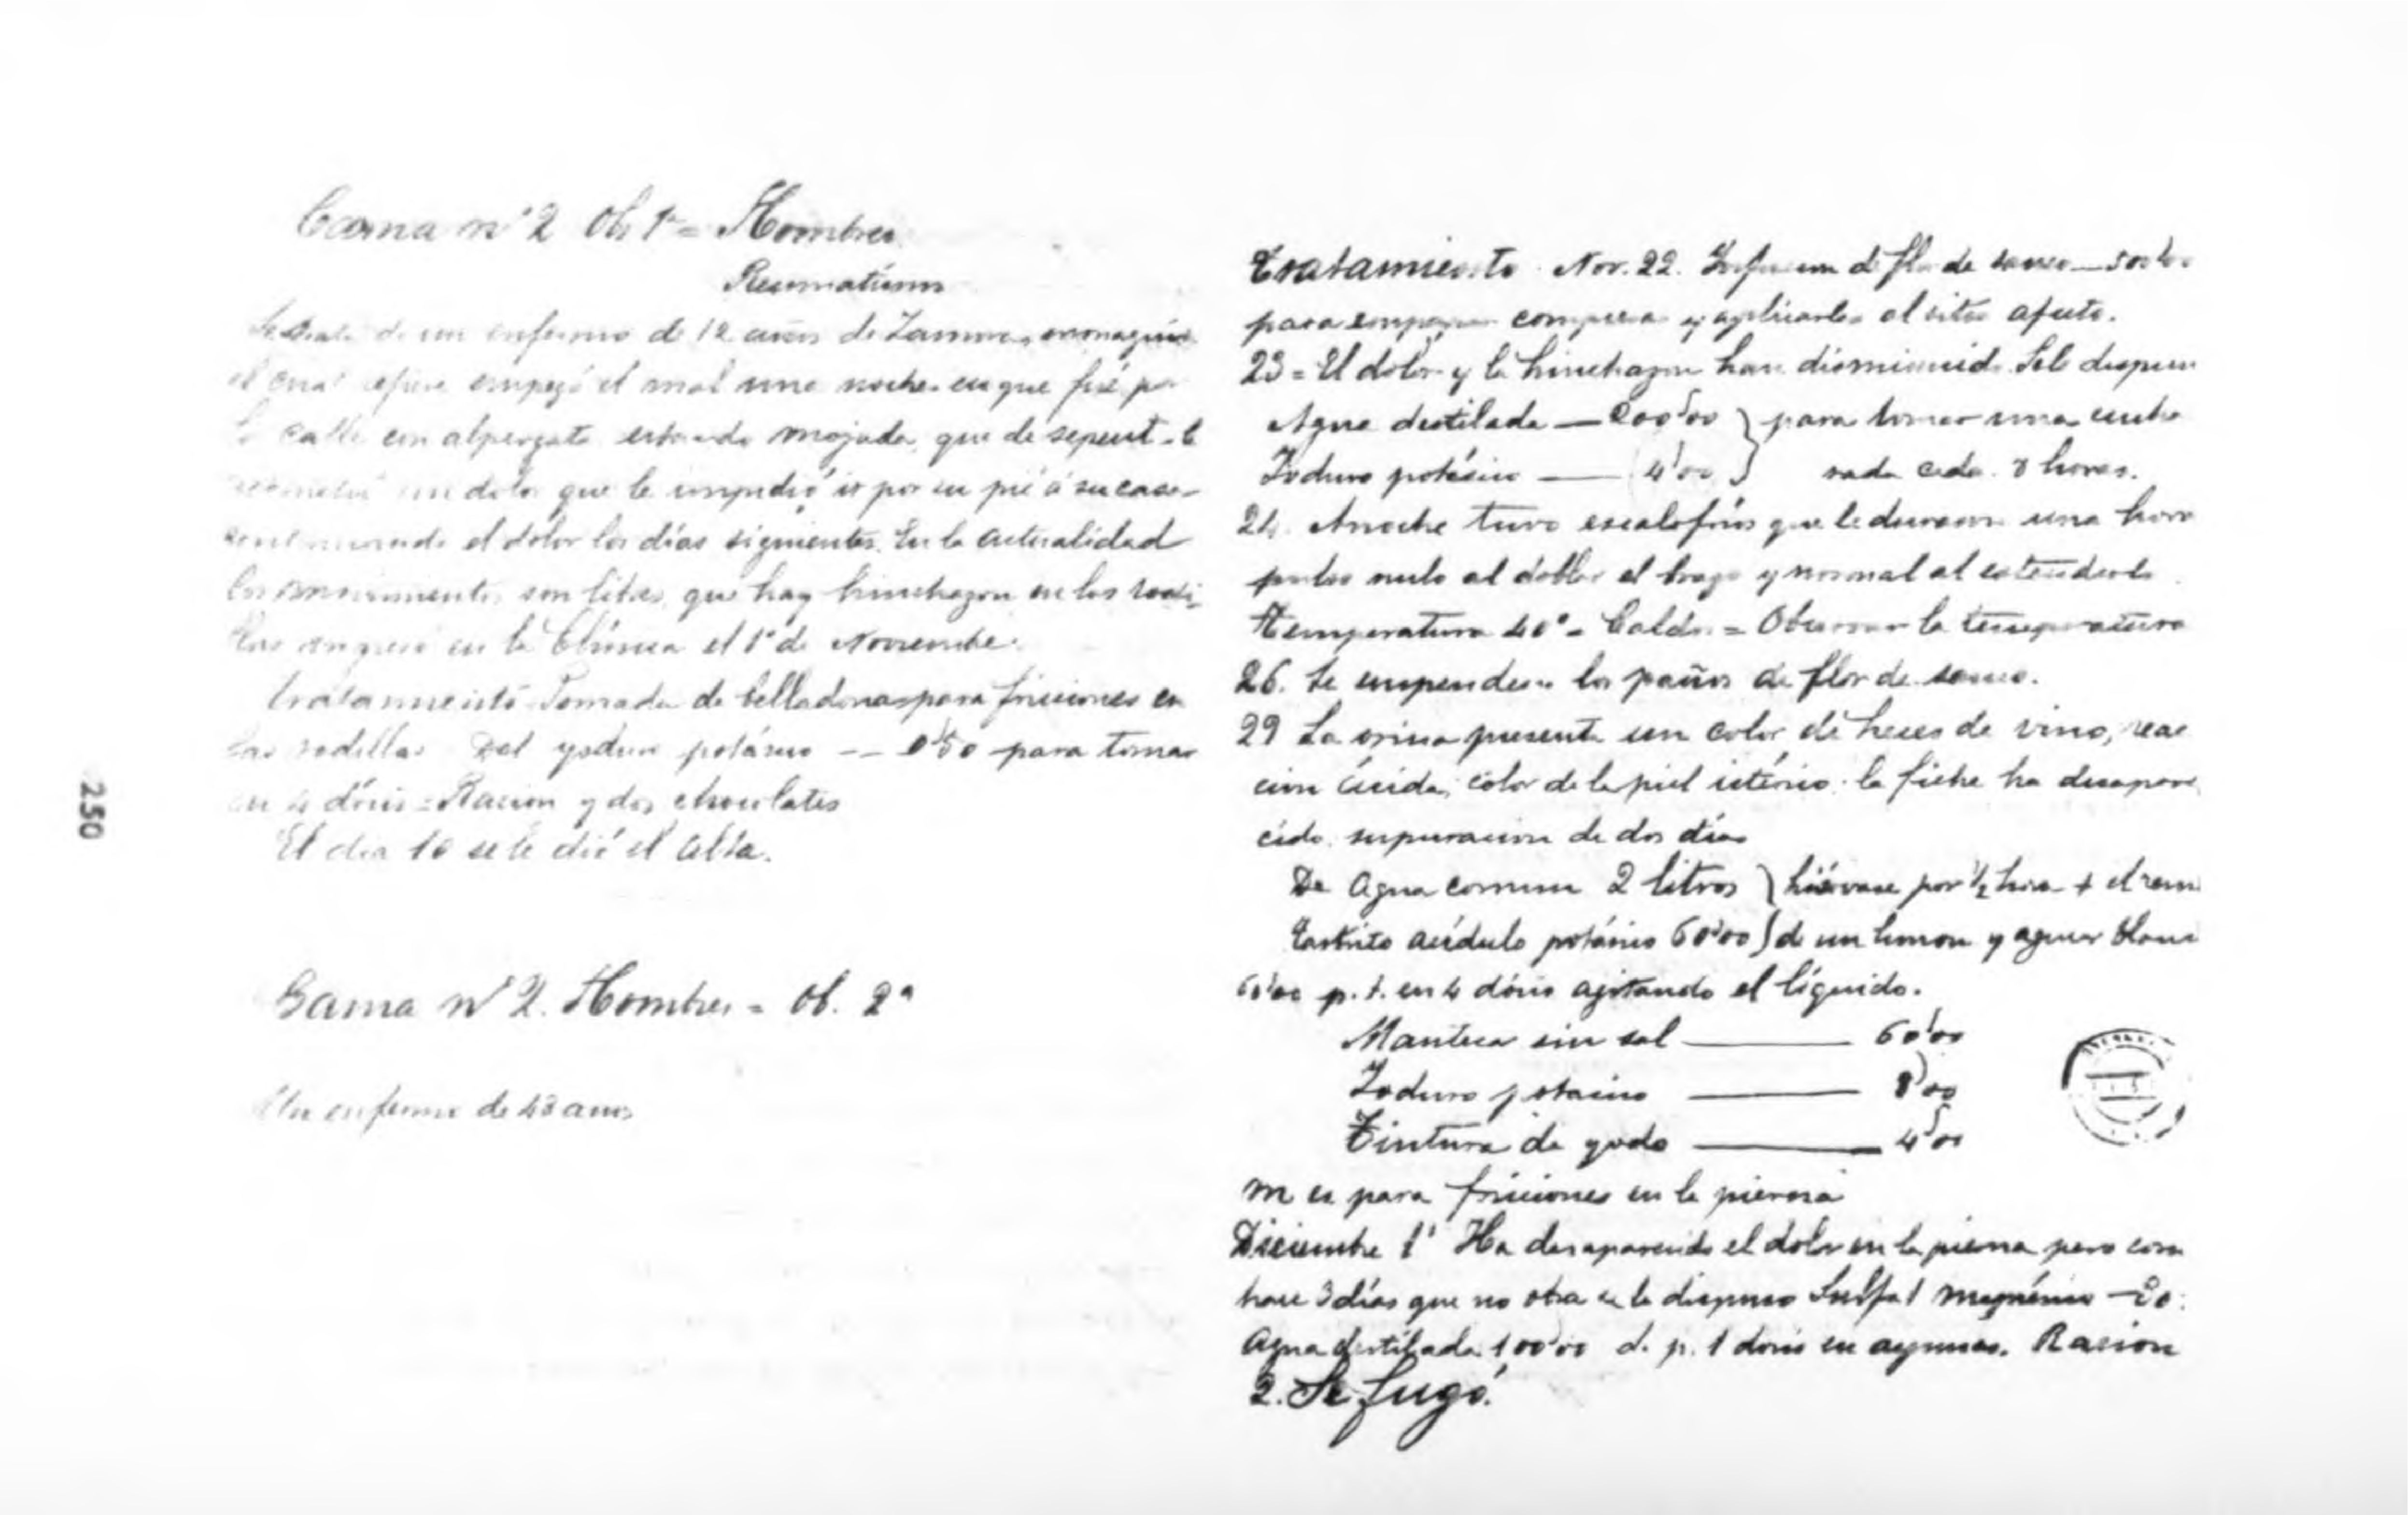 Cama nº 2 Ob. 1ª = Hombres
Reumatismo
Se trata de un enfermo de 12 años de Zamora, monaguillo
el cual refiere empezó el mal una noche en que fué por
la calle con alpargata estando mojada, que de repente le
un dolor que le impidió ir por su pié á su casa
continuando el dolor los días siguientes. En la actualidad
los movimientos son libres, que hay hinchazon en las rodi-
llas ingresó en la Clínica el 1º de Noviembre.
tratamiento Pomada de belladona para fricciones en
las rodillas Del yoduro potásico — 0'50 para tomar
en 4 dósis = Racion y dos chocolates
El dia 10 se le dió el alta.
Cama nº 2. Hombres = Ob. 2ª
Un enfermo de 43 años
250
Tratamiento Nov. 22. Infusion de flor de sauco — 500'00
para empapar compresas y aplicarlas al sitio afecto.
23 = El dolor y la hinchazon han disminuido. Se le dispuso
Agua destilada — 200'00 } para tomar una cucha
Ioduro potásico — 4'00 } rada cada 8 horas.
24. Anoche tuvo escalofrios que le duraron una hora
pulso nulo al doblar el brazo y normal al estenderlo
Temperatura 40º = Caldo = Observar la temperatura
26. Se suspenden los paños de flor de sauco.
29 La orina presenta un color de heces de vino, reac
cion ácida, color de la piel ictérico. la fiebre ha desapare
cido, supuracion de dos días
De Agua comun 2 litros } hiérvase por ½ hora +
Tartrito acídulo potásico 60'00 } de un limon y azucar blanca
60'00 p. t. en 4 dósis agitando el líquido.
Manteca sin sal — 60'00
Ioduro potasico — 8'00
Tintura de yodo — 4'00
m es para fricciones en la pierna
Diciembre 1º Ha desaparecido el dolor en la pierna pero como
hace 3 días que no obra se le dispuso Sulfat magnésico — 30
Agua destilada 100'00 d. p. 1 dosis en ayunas. Racion
2. Se fugó.